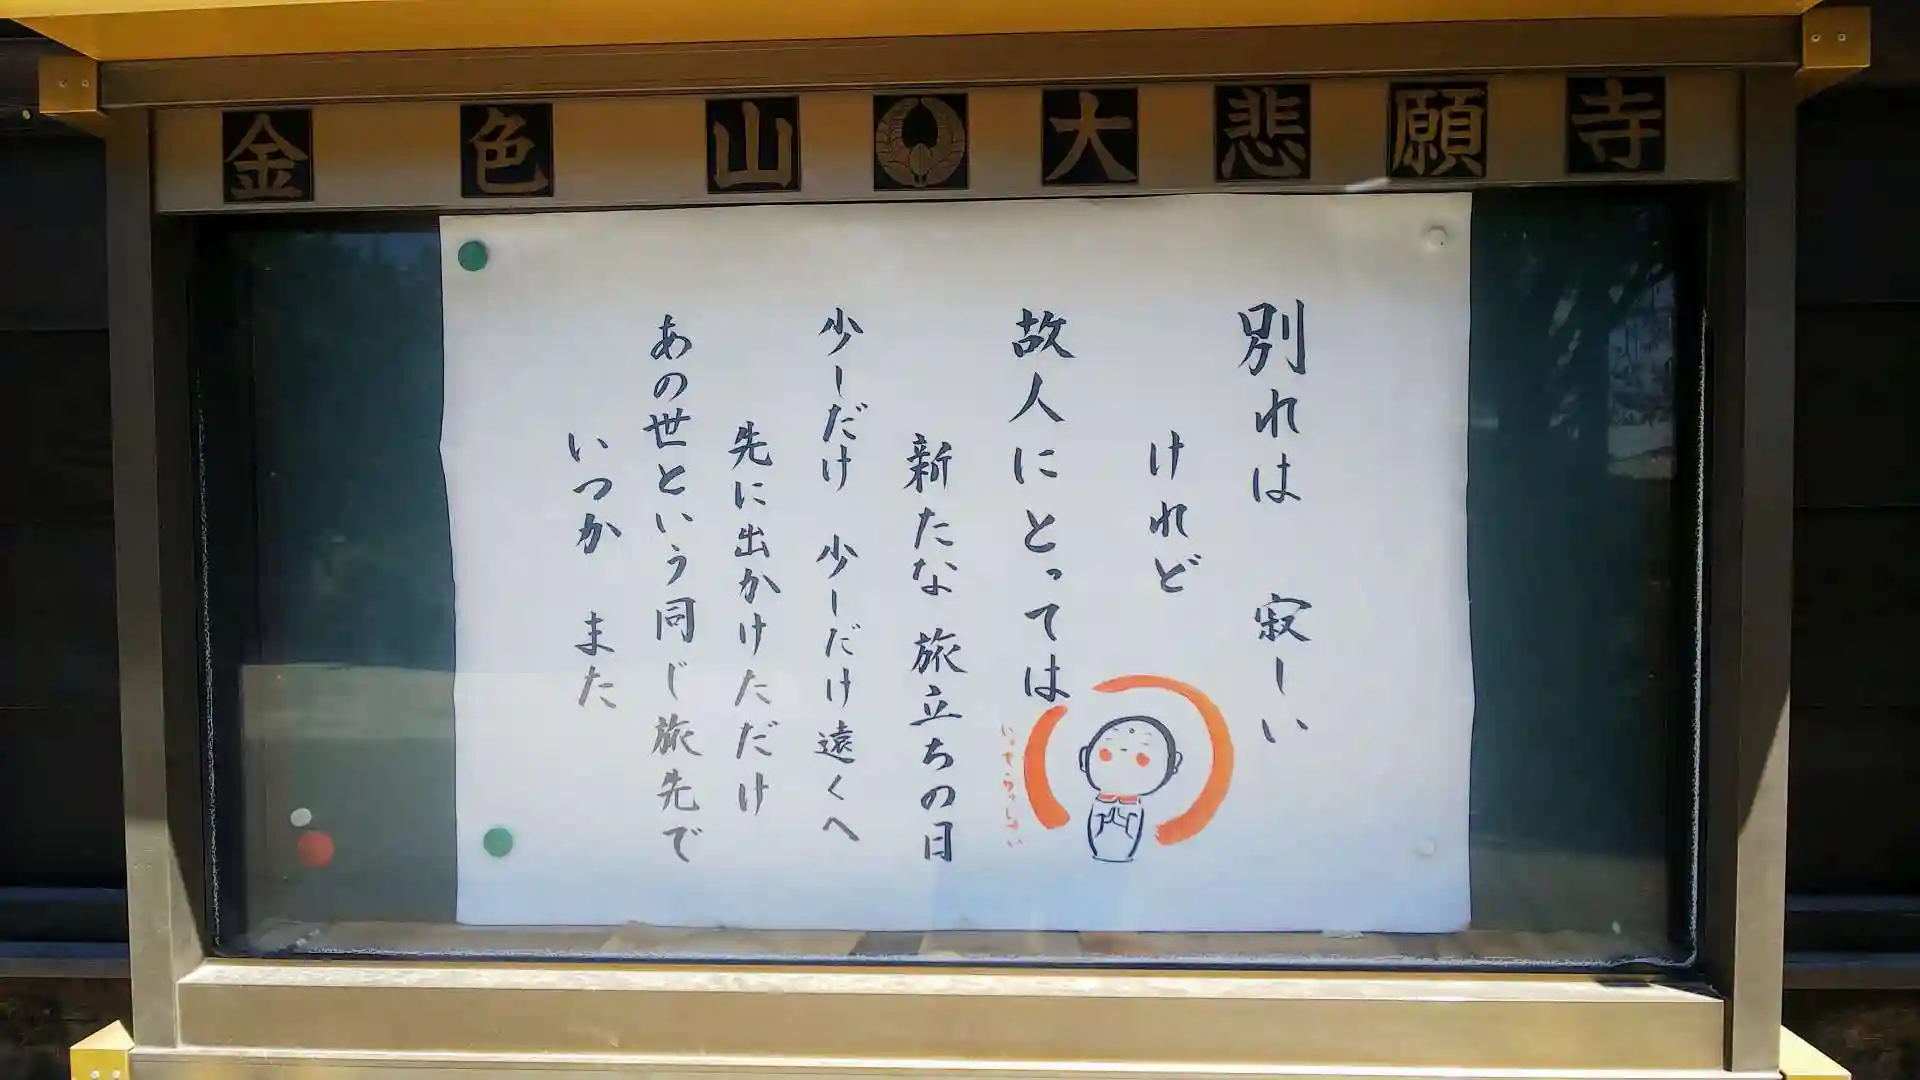 金色山大悲願寺
別れは 寂しい
けれど
故人にとっては
新たな旅立ちの日
少しだけ 少しだけ遠くへ
先に出かけただけ
あの世という同じ旅先で
いつか また
いってらっしゃい